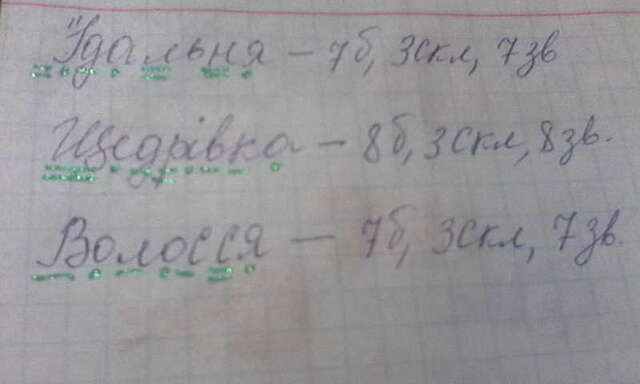 Їдальня – 7б, 3скл, 7зв
Щедрівка – 8б, 3скл, 8зв.
Волосся – 7б, 3скл, 7зв.